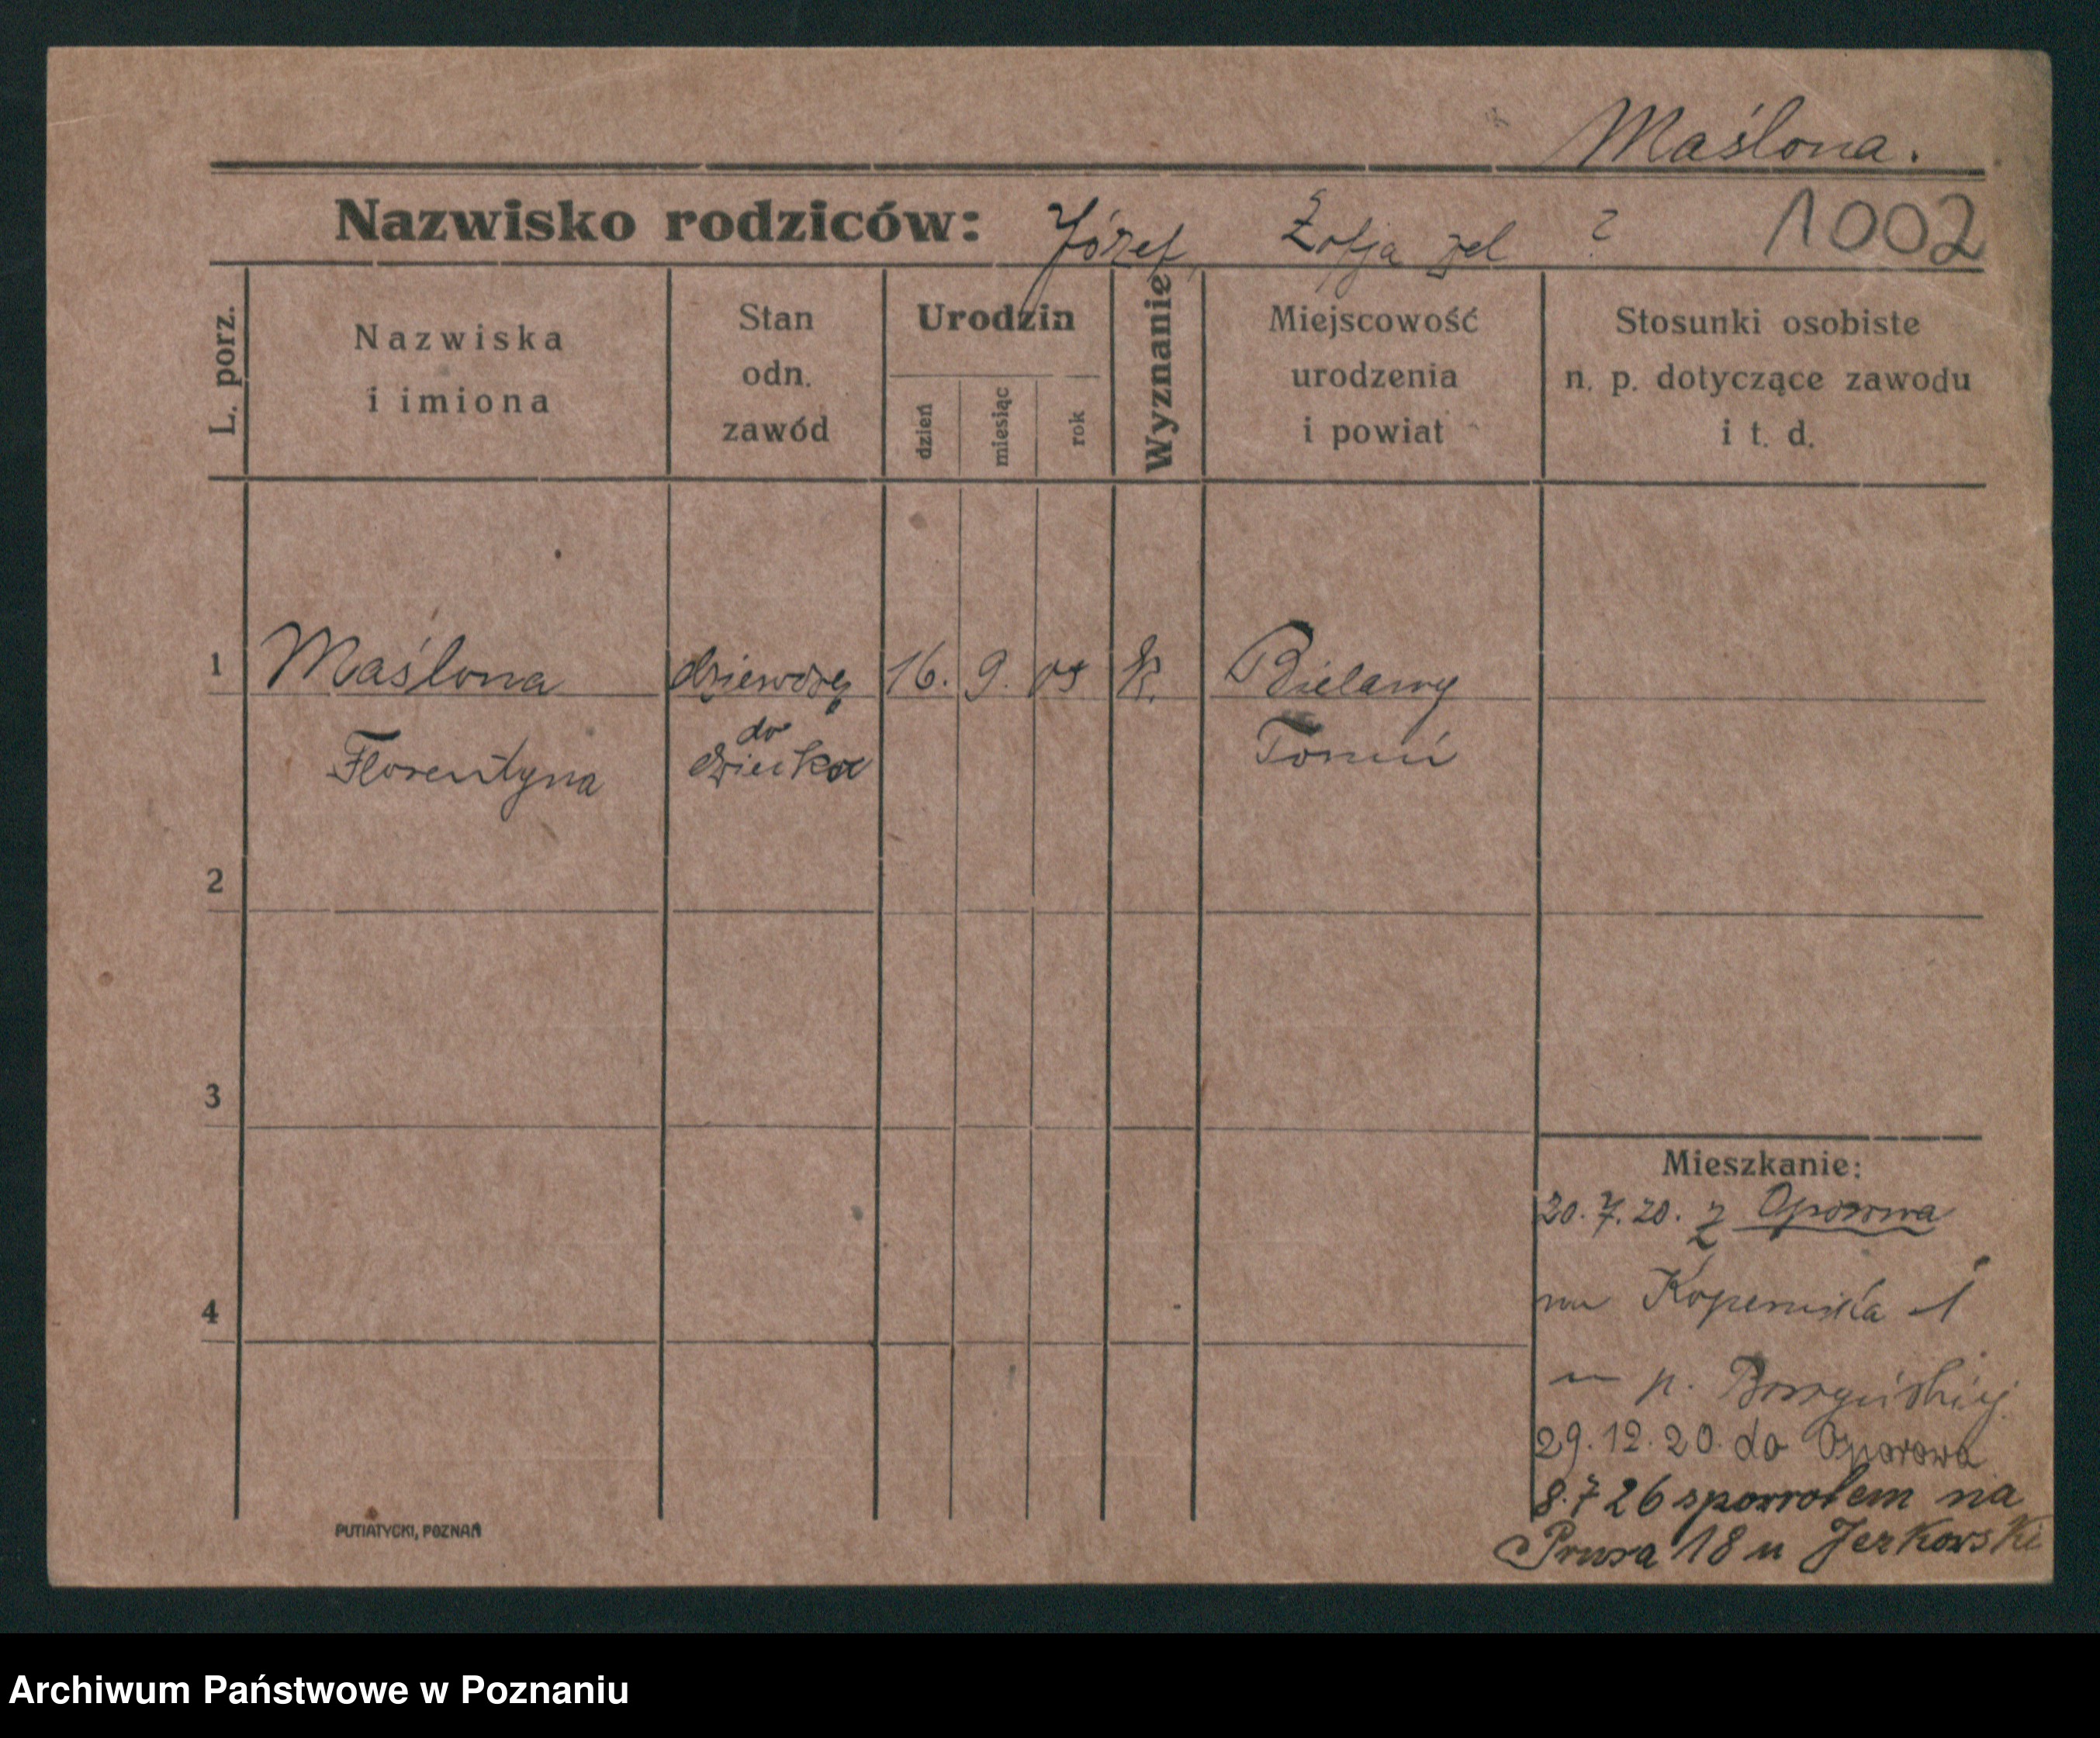 Maślona.
Nazwisko rodziców: Józef, Zofja ? 1002
L. porz.
Nazwiska
i imiona
Stan
odn.
zawód
Urodzin
dzień
miesiąc
rok
Wyznanie
Miejscowość
urodzenia
i powiat
Stosunki osobiste
n. p. dotyczące zawodu
i t. d.
1 Maślona dziewczę 16. 9. 05 k. Bielawy
Florentyna do dziecka Toruń
2
3
4
Mieszkanie:
20.7.20. z Oporowa
na Kopernika 1
p.
29.12.20. do Oporowa
8.7 26 na
Prusa 18 u Jezkowski
PUTIATYCKI, POZNAŃ
Archiwum Państwowe w Poznaniu